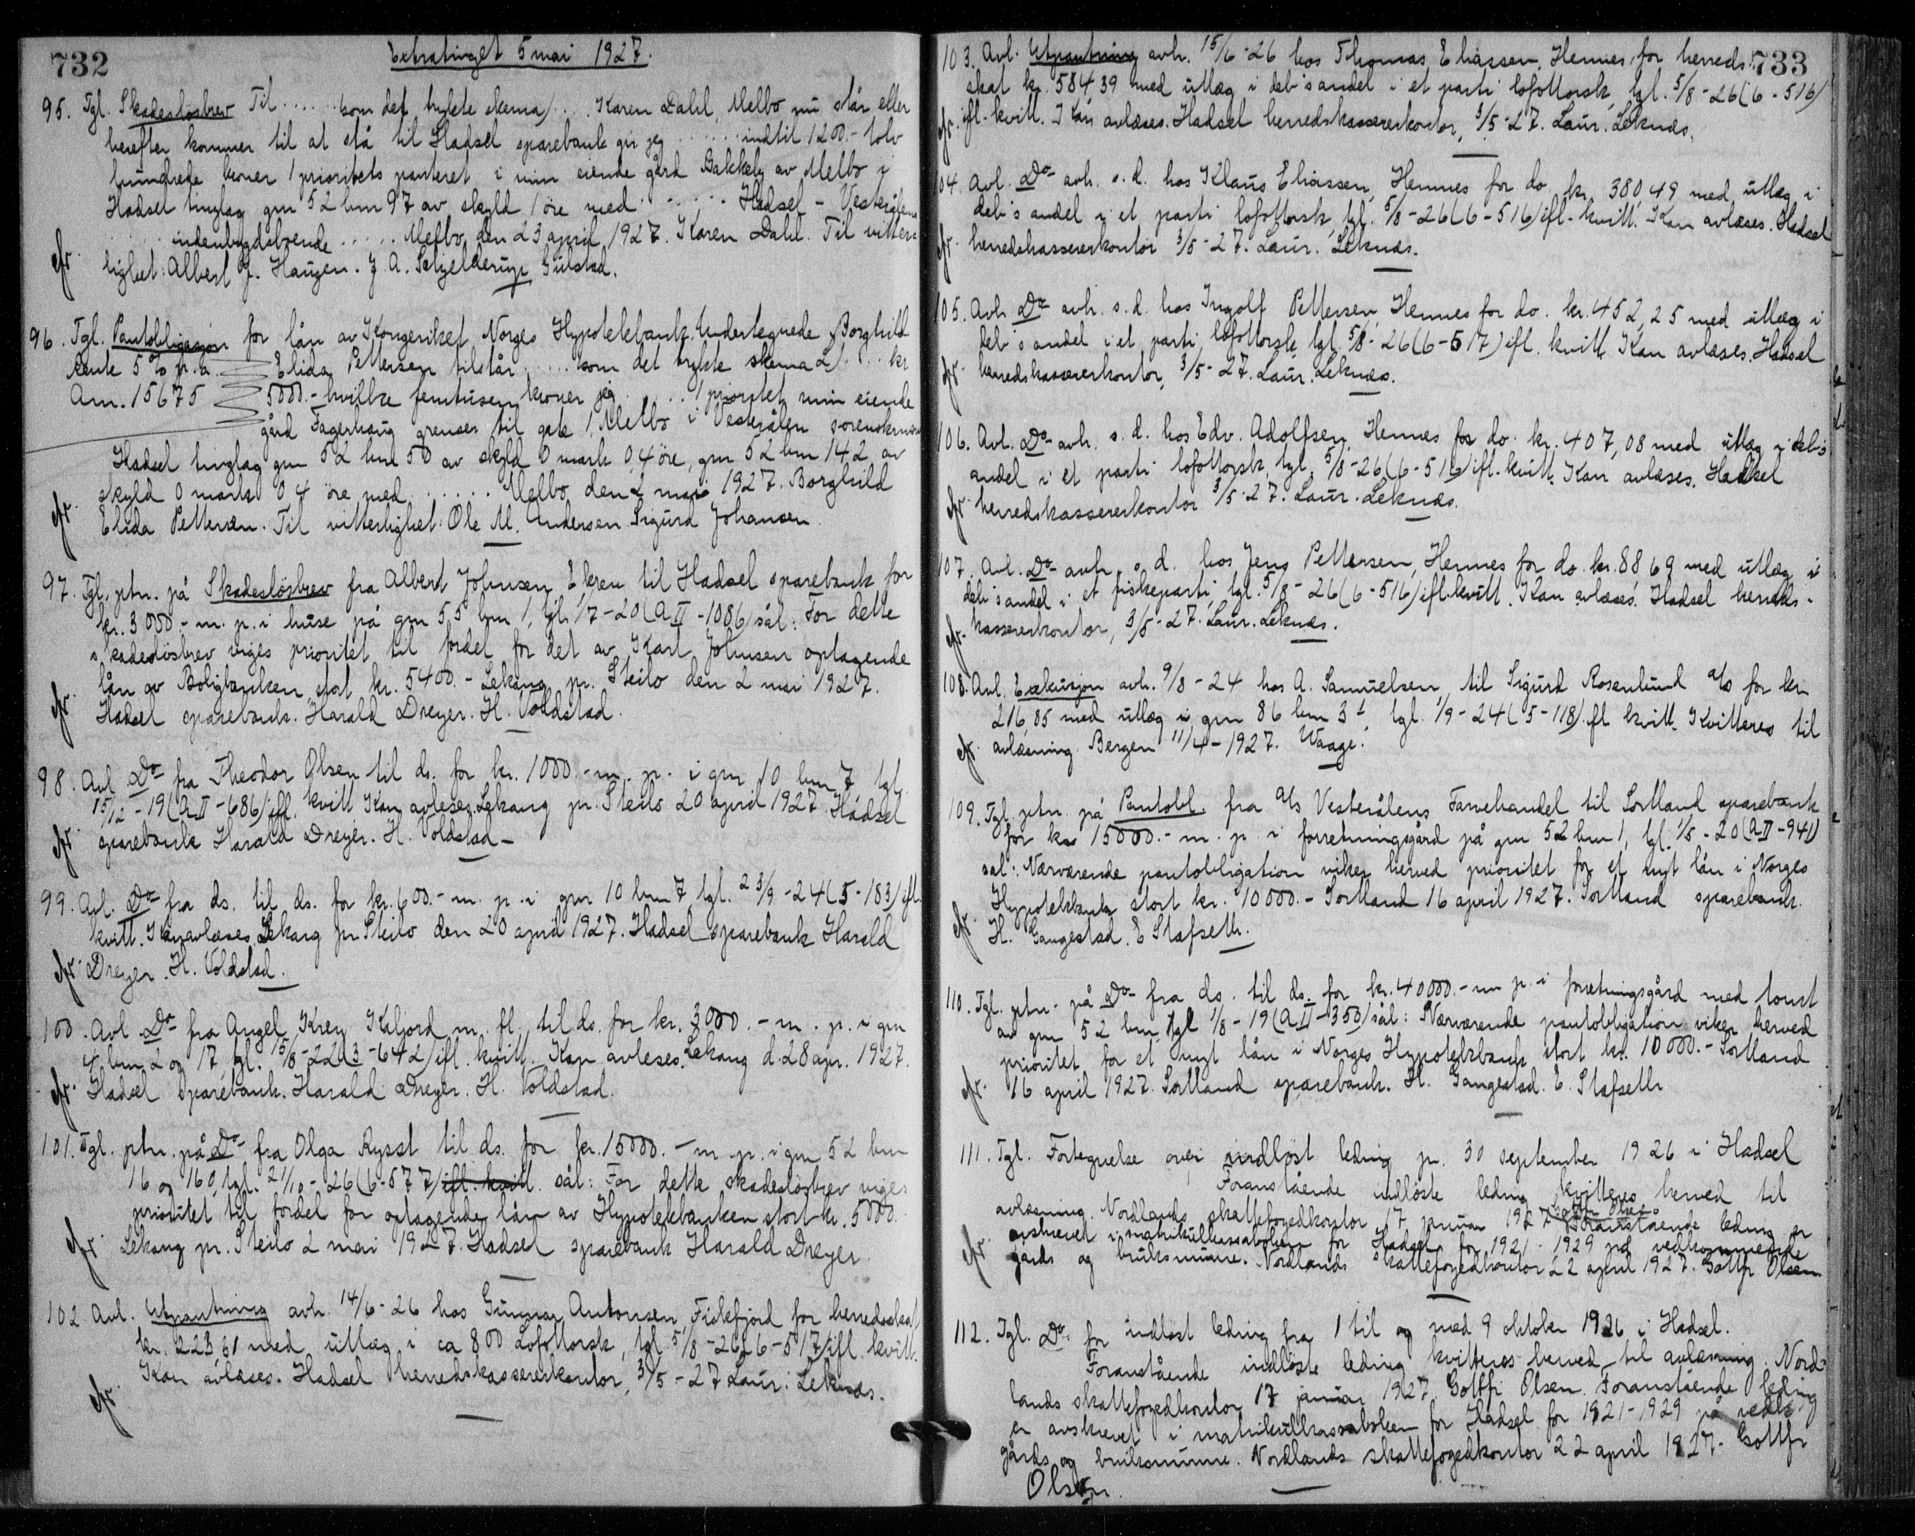 732
Extratinget 5 mai 1927.
95. Tgl. Skadesløsbrev Til ..... som det trykte skema) ... Karen Dahl, Melbo nu står eller
herefter kommer til at stå til Hadsel sparebank gir jeg ...... indtil 1200.- tolv
hundrede kroner 1 prioritets panteret i min eiende gård Bakkely av Melbo i
Hadsel tinglag gnr 52 bnr 97 av skyld 1 øre med ...... Hadsel - Vesterålens
..... indenbygdsboende ..... Melbo, den 23 april 1927. Karen Dahl. Til vitter-
lighet: Albert J. Haugen. J A. Schjelderup Gulstad.
96. Tgl. Pantobligasjon for lån av Kongeriket Norges Hypotekbank. Undertegnede Borghild
Rente 5% p.a. Elida Pettersen tilstår ..... som det trykte skema 2 ... kr
Ann. 15675 5000.- hvilke femtusen kroner jeg ..... 1 prioritet min eiende
gård Fagerhaug grenser til gate 1, Melbo i Vesterålen sorenskriveri
Hadsel tinglag gnr 52 bnr 50 av skyld 0 mark 04 øre, gnr 52 bnr 142 av
skyld 0 mark 04 øre med ...... Melbo, den 2 mai 1927. Borghild
Elida Pettersen. Til vitterlighet: Ole M. Andersen Sigurd Johansen.
97. Tgl. ptn. på Skadesløsbrev fra Albert Johnsen Ekren til Hadsel sparebank for
kr. 3000.- m. p. i huse på gnr 55 bnr 1, tgl. 1/7-20 (A II -1086) sål: For dette
skadesløsbrev viges prioritet til fordel for det av Karl Johnsen optagende
lån av Boligbanken, stort kr. 5400.- Lekang pr. Steilo den 2 mai 1927.
Hadsel sparebank. Harald Dreyer. H. Voldstad.
98. Avl Do fra Theodor Olsen til ds. for kr. 1000.- m. p. i gnr 10 bnr 7 tgl.
15/12-19 (A II -686) ifl. kvitt. Kan avleses. Lekang pr. Steilo 20 april 1927. Hadsel
sparebank Harald Dreyer. H. Voldstad -
99. Avl. Do fra ds. til ds. for kr. 600.- m. p. i gnr 10 bnr 7 tgl. 23/9-24 (5-183) ifl.
kvitt. Kan avleses. Lekang pr. Steilo den 20 april 1927. Hadsel sparebank Harald
Dreyer. H. Voldstad.
100. Avl Do fra Angel Krey Kaljord m. fl. til ds. for kr. 3000.- m. p. i gnr
4 bnr 2 og 17 tgl. 15/8-22 (3-642) ifl. kvitt. Kan avleses. Lekang d. 28 apr. 1927.
Hadsel sparebank. Harald Dreyer. H. Voldstad.
101. Tgl. ptn. på Do fra Olga Rysst til ds. for kr. 15000.- m. p. i gnr 52 bnr
16 og 160, tgl. 21/10-26 (6-577) ifl. kvitt. sål: For dette skadesløsbrev viges
prioritet til fordel for optagende lån av Hypotekbanken stort kr. 5000.
Lekang pr. Steilo 2 mai 1927. Hadsel sparebank Harald Dreyer.
102 Avl. Utpantning avh. 14/6-26 hos Gunnar Antonsen Fiskefjord for herredsskat
kr. 223,61 med utlæg i ca 800 Lofottorsk, tgl. 5/8-26 (6-517) ifl. kvitt.
Kan avlæses. Hadsel herredskassererkontor, 3/5-27 Laur. Leknæs.
733
103. Avl. Utpantning avh. 15/6-26 hos Thomas Eliassen, Hennes, for herreds
skat kr. 584 39 med utlæg i deb's andel i et parti lofottorsk, tgl. 5/8-26 (6-516)
ifl. kvitt. Kan avlæses. Hadsel herredskassererkontor, 3/5-27. Laur. Leknæs.
104. Avl. Do avh. s. d. hos Klaus Eliassen, Hennes for do kr. 380,49 med utlæg i
deb's andel i et parti lofottorsk, tgl. 5/8-26 (6-516) ifl. kvitt. Kan avlæses. Hadsel
herredskassererkontor 3/5-27. Laur. Leknæs.
105. Avl. Do avh. s. d. hos Ingolf Pettersen, Hennes for do. kr. 452,25 med utlæg i
deb's andel i et parti lofottorsk, tgl. 5/8-26 (6-517) ifl. kvitt. Kan avlæses. Hadsel
herredskassererkontor, 3/5-27. Laur. Leknæs.
106. Avl. Do avh. s. d. hos Edv. Adolfsen, Hennes for do. kr. 407,08 med utlæg i deb's
andel i et parti lofottorsk, tgl. 5/8-26 (6-516) ifl. kvitt. Kan avlæses. Hadsel
herredskassererkontor 3/5-27. Laur. Leknæs.
107. Avl. Do avh. s. d. hos Jens Pettersen, Hennes for do. kr. 88 69 med utlæg i
deb's andel i et fiskeparti, tgl. 5/8-26 (6-516) ifl. kvitt. Kan avlæses. Hadsel herreds-
kassererkontor, 3/5-27. Laur. Leknæs.
108. Avl. Exekusjon avh. 9/8-24 hos A. Samuelsen, til Sigurd Rosenlund a/s for kr
216,05 med utlæg i gnr 86 bnr 3, tgl. 1/9-24 (5-118) ifl kvitt. Kvitteres til
avlæsning. Bergen 11/4-1927. Waage.
109. Tgl. ptn. på Pantobl. fra A/s Vesterålens Farvehandel til Sortland sparebank
for kr. 15000.- m. p. i forretningsgård på gnr 52 bnr 1, tgl. 1/5-20 (A II -941)
sål: Nærværende pantobligation viker herved prioritet for et nyt lån i Norges
Hypotekbank stort kr. 10000.- Sortland 16 april 1927. Sortland sparebank.
H. Gangestad. E Stafseth.
110. Tgl. ptn. på Do fra ds. til ds. for kr. 40000.- m p. i forretningsgård med tomt
av gnr 52 bnr, tgl 1/8-19 (A II -350) sål: Nærværende pantobligation viker herved
prioritet for et nyt lån i Norges Hypotekbank, stort kr. 10000.- Sortland
16 april 1927. Sortland sparebank. H. Gangestad. E. Stafseth
111. Tgl. Fortegnelse over indløst leding pr. 30 september 1926 i Hadsel
Foranstående indløste leding kvitteres herved til
avlæsning. Nordlands skattefogedkontor 17 januar 1927. Gottfr Olsen. Foranstående leding er
avskrevet i matrikulkassaboken for Hadsel for 1921-1929 på vedkommende
gårds og bruksnumre. Nordlands skattefogedkontor 22 april 1927. Gottfr Olsen
112. Tgl. Do. for indløst leding fra 1 til og med 9 oktober 1926 i Hadsel.
Foranstående indløste leding kvitteres herved til avlæsning. Nord-
lands skattefogedkontor 17 januar 1927. Gottfr Olsen. Foranstående leding
er avskrevet i matrikulkassaboken for Hadsel for 1921-1929 på vedk
gårds og bruksnumre. Nordlands skattefogedkontor 22 april 1927. Gottfr
Olsen.